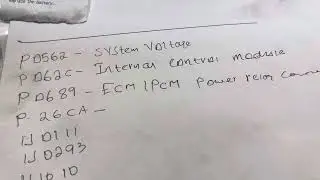 P0562 - System Voltage
P062C - Internal control module
P0689 - ECM/PCM Power relay
P 26CA -
U0111
U0293
U1010